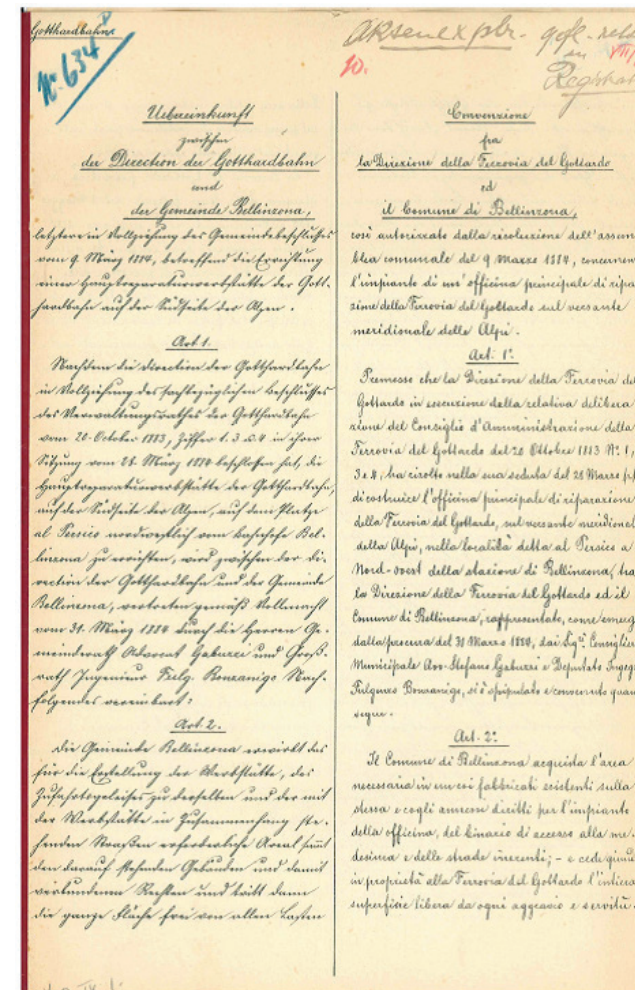 Gotthardbahn.
No. 634
10.
Registrat
Uebereinkunft
zwischen
der Direction der Gotthardbahn
und
der Gemeinde Bellinzona,
letztere in Vollziehung des Gemeindebeschlusses
vom 9. März 1884, betreffend die Errichtung
einer Hauptreparaturwerkstätte der Gott-
hardbahn auf der Südseite der Alpen.
Art. 1.
Nachdem die Direction der Gotthardbahn
in Vollziehung des sachbezüglichen Beschlusses
des Verwaltungsrathes der Gotthardbahn
vom 20. October 1883, Ziffer 1. 3 u. 4 in ihrer
Sitzung vom 28. März 1884 beschlossen hat, die
Hauptreparaturwerkstätte der Gotthardbahn,
auf der Südseite der Alpen, auf dem Platze
al Persico nordwestlich vom Bahnhofe Bel-
linzona zu errichten, wird zwischen der Di-
rection der Gotthardbahn und der Gemeinde
Bellinzona, vertreten gemäß Vollmacht
vom 31. März 1884 durch die Herren Ge-
meinderath Advocat Gabuzzi und Groß-
rath Ingenieur Fulg. Bonzanigo Nach-
folgendes vereinbart:
Art. 2.
Die Gemeinde Bellinzona erwirbt das
für die Erstellung der Werkstätte, des
Zufahrtsgeleises zu derselben und der mit
der Werkstätte in Zusammenhang ste-
henden Straßen erforderliche Areal sammt
den darauf stehenden Gebäuden und damit
verbundenen Rechten und tritt dann
die ganze Fläche frei von allen Lasten
Convenzione
fra
la Direzione della Ferrovia del Gottardo
ed
il Comune di Bellinzona,
così autorizzato dalla risoluzione dell'assem
blea comunale del 9 marzo 1884, concernen
l'impianto di un'officina principale di ripa
zione della Ferrovia del Gottardo sul versante
meridionale delle Alpi.
Art. 1º
Premesso che la Direzione della Ferrovia del
Gottardo in esecuzione della relativa delibera
zione del Consiglio d'Amministrazione della
Ferrovia del Gottardo del 20 Ottobre 1883 Nº 1,
3 e 4, ha risolto nella sua seduta del 28 Marzo p.p.
di costruire l'officina principale di riparazione
della Ferrovia del Gottardo, sul versante meridional
delle Alpi, nella località detta al Persico a
Nord-ovest della stazione di Bellinzona, tra
la Direzione della Ferrovia del Gottardo ed il
Comune di Bellinzona, rappresentato, come emerg
dalla procura del 31 Marzo 1884, dai Sigri Consiglier
Municipale Avv. Stefano Gabuzzi e Deputato Ingeg
Fulgenzo Bonzanigo, si è stipulato e convenuto quan
segue.
Art. 2º
Il Comune di Bellinzona acquista l'area
necessaria in un coi fabbricati esistenti sulla
stessa e cogli annessi diritti per l'impianto
della officina, del binario di accesso alla me-
desima e delle strade inerenti; - e cede quind
in proprietà alla Ferrovia del Gottardo l'intiera
superficie libera da ogni aggravio e servitù.